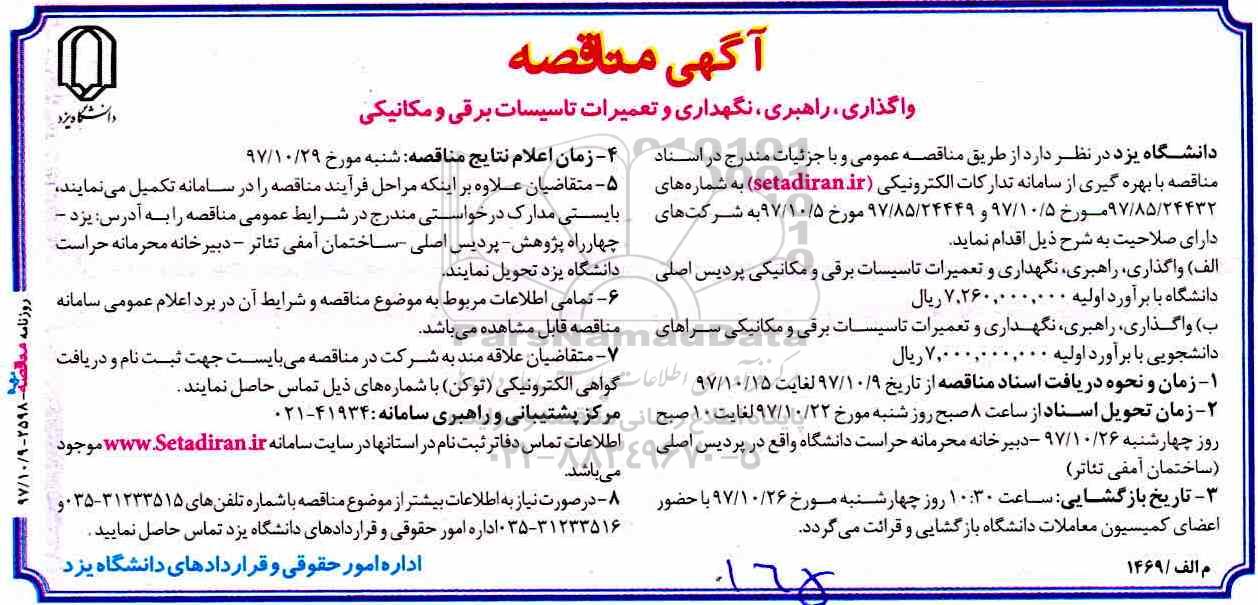 آگهی مناقصه
واگذاری، راهبری، نگهداری و تعمیرات تاسیسات برقی و مکانیکی
دانشگاه یزد
دانشگاه یزد در نظر دارد از طریق مناقصه عمومی و با جزئیات مندرج در اسناد
مناقصه با بهره گیری از سامانه تدارکات الکترونیکی (setadiran.ir) به شماره‌های
۹۷/۸۵/۲۴۴۳۲ مورخ ۹۷/۱۰/۵ و ۹۷/۸۵/۲۴۴۴۹ مورخ ۹۷/۱۰/۵ به شرکت‌های
دارای صلاحیت به شرح ذیل اقدام نماید.
الف) واگذاری، راهبری، نگهداری و تعمیرات تاسیسات برقی و مکانیکی پردیس اصلی
دانشگاه با برآورد اولیه ۷,۲۶۰,۰۰۰,۰۰۰ ریال
ب) واگذاری، راهبری، نگهداری و تعمیرات تاسیسات برقی و مکانیکی سراهای
دانشجویی با برآورد اولیه ۷,۰۰۰,۰۰۰,۰۰۰ ریال
۱- زمان و نحوه دریافت اسناد مناقصه از تاریخ ۹۷/۱۰/۹ لغایت ۹۷/۱۰/۱۵
۲- زمان تحویل اسناد از ساعت ۸ صبح روز شنبه مورخ ۹۷/۱۰/۲۲ لغایت ۱۰ صبح
روز چهارشنبه ۹۷/۱۰/۲۶ - دبیرخانه محرمانه حراست دانشگاه واقع در پردیس اصلی
(ساختمان آمفی تئاتر)
۳- تاریخ بازگشایی: ساعت ۱۰:۳۰ روز چهارشنبه مورخ ۹۷/۱۰/۲۶ با حضور
اعضای کمیسیون معاملات دانشگاه بازگشایی و قرائت می گردد.
م الف /۱۴۶۹
۴- زمان اعلام نتایج مناقصه: شنبه مورخ ۹۷/۱۰/۲۹
۵- متقاضیان علاوه بر اینکه مراحل فرآیند مناقصه را در سامانه تکمیل می‌نمایند،
بایستی مدارک درخواستی مندرج در شرایط عمومی مناقصه را به آدرس: یزد -
چهارراه پژوهش- پردیس اصلی - ساختمان آمفی تئاتر - دبیرخانه محرمانه حراست
دانشگاه یزد تحویل نمایند.
۶- تمامی اطلاعات مربوط به موضوع مناقصه و شرایط آن در برد اعلام عمومی سامانه
مناقصه قابل مشاهده می‌باشد.
۷- متقاضیان علاقه مند به شرکت در مناقصه می‌بایست جهت ثبت نام و دریافت
گواهی الکترونیکی (توکن) با شماره‌های ذیل تماس حاصل نمایند .
مرکز پشتیبانی و راهبری سامانه : ۴۱۹۳۴-۰۲۱
اطلاعات تماس دفاتر ثبت نام در استانها در سایت سامانه www.Setadiran.ir موجود
می‌باشد.
۸- در صورت نیاز به اطلاعات بیشتر از موضوع مناقصه با شماره تلفن های ۳۱۲۳۳۵۱۵-۰۳۵ و
۳۱۲۳۳۵۱۶-۰۳۵ اداره امور حقوقی و قراردادهای دانشگاه یزد تماس حاصل نمایید .
اداره امور حقوقی و قراردادهای دانشگاه یزد
روزنامه مناقصه -۲۵۹۸-۹۷/۱۰/۹
ParsNamadData
۰۲۱-۸۸۳۴۹۶۷۰-۵